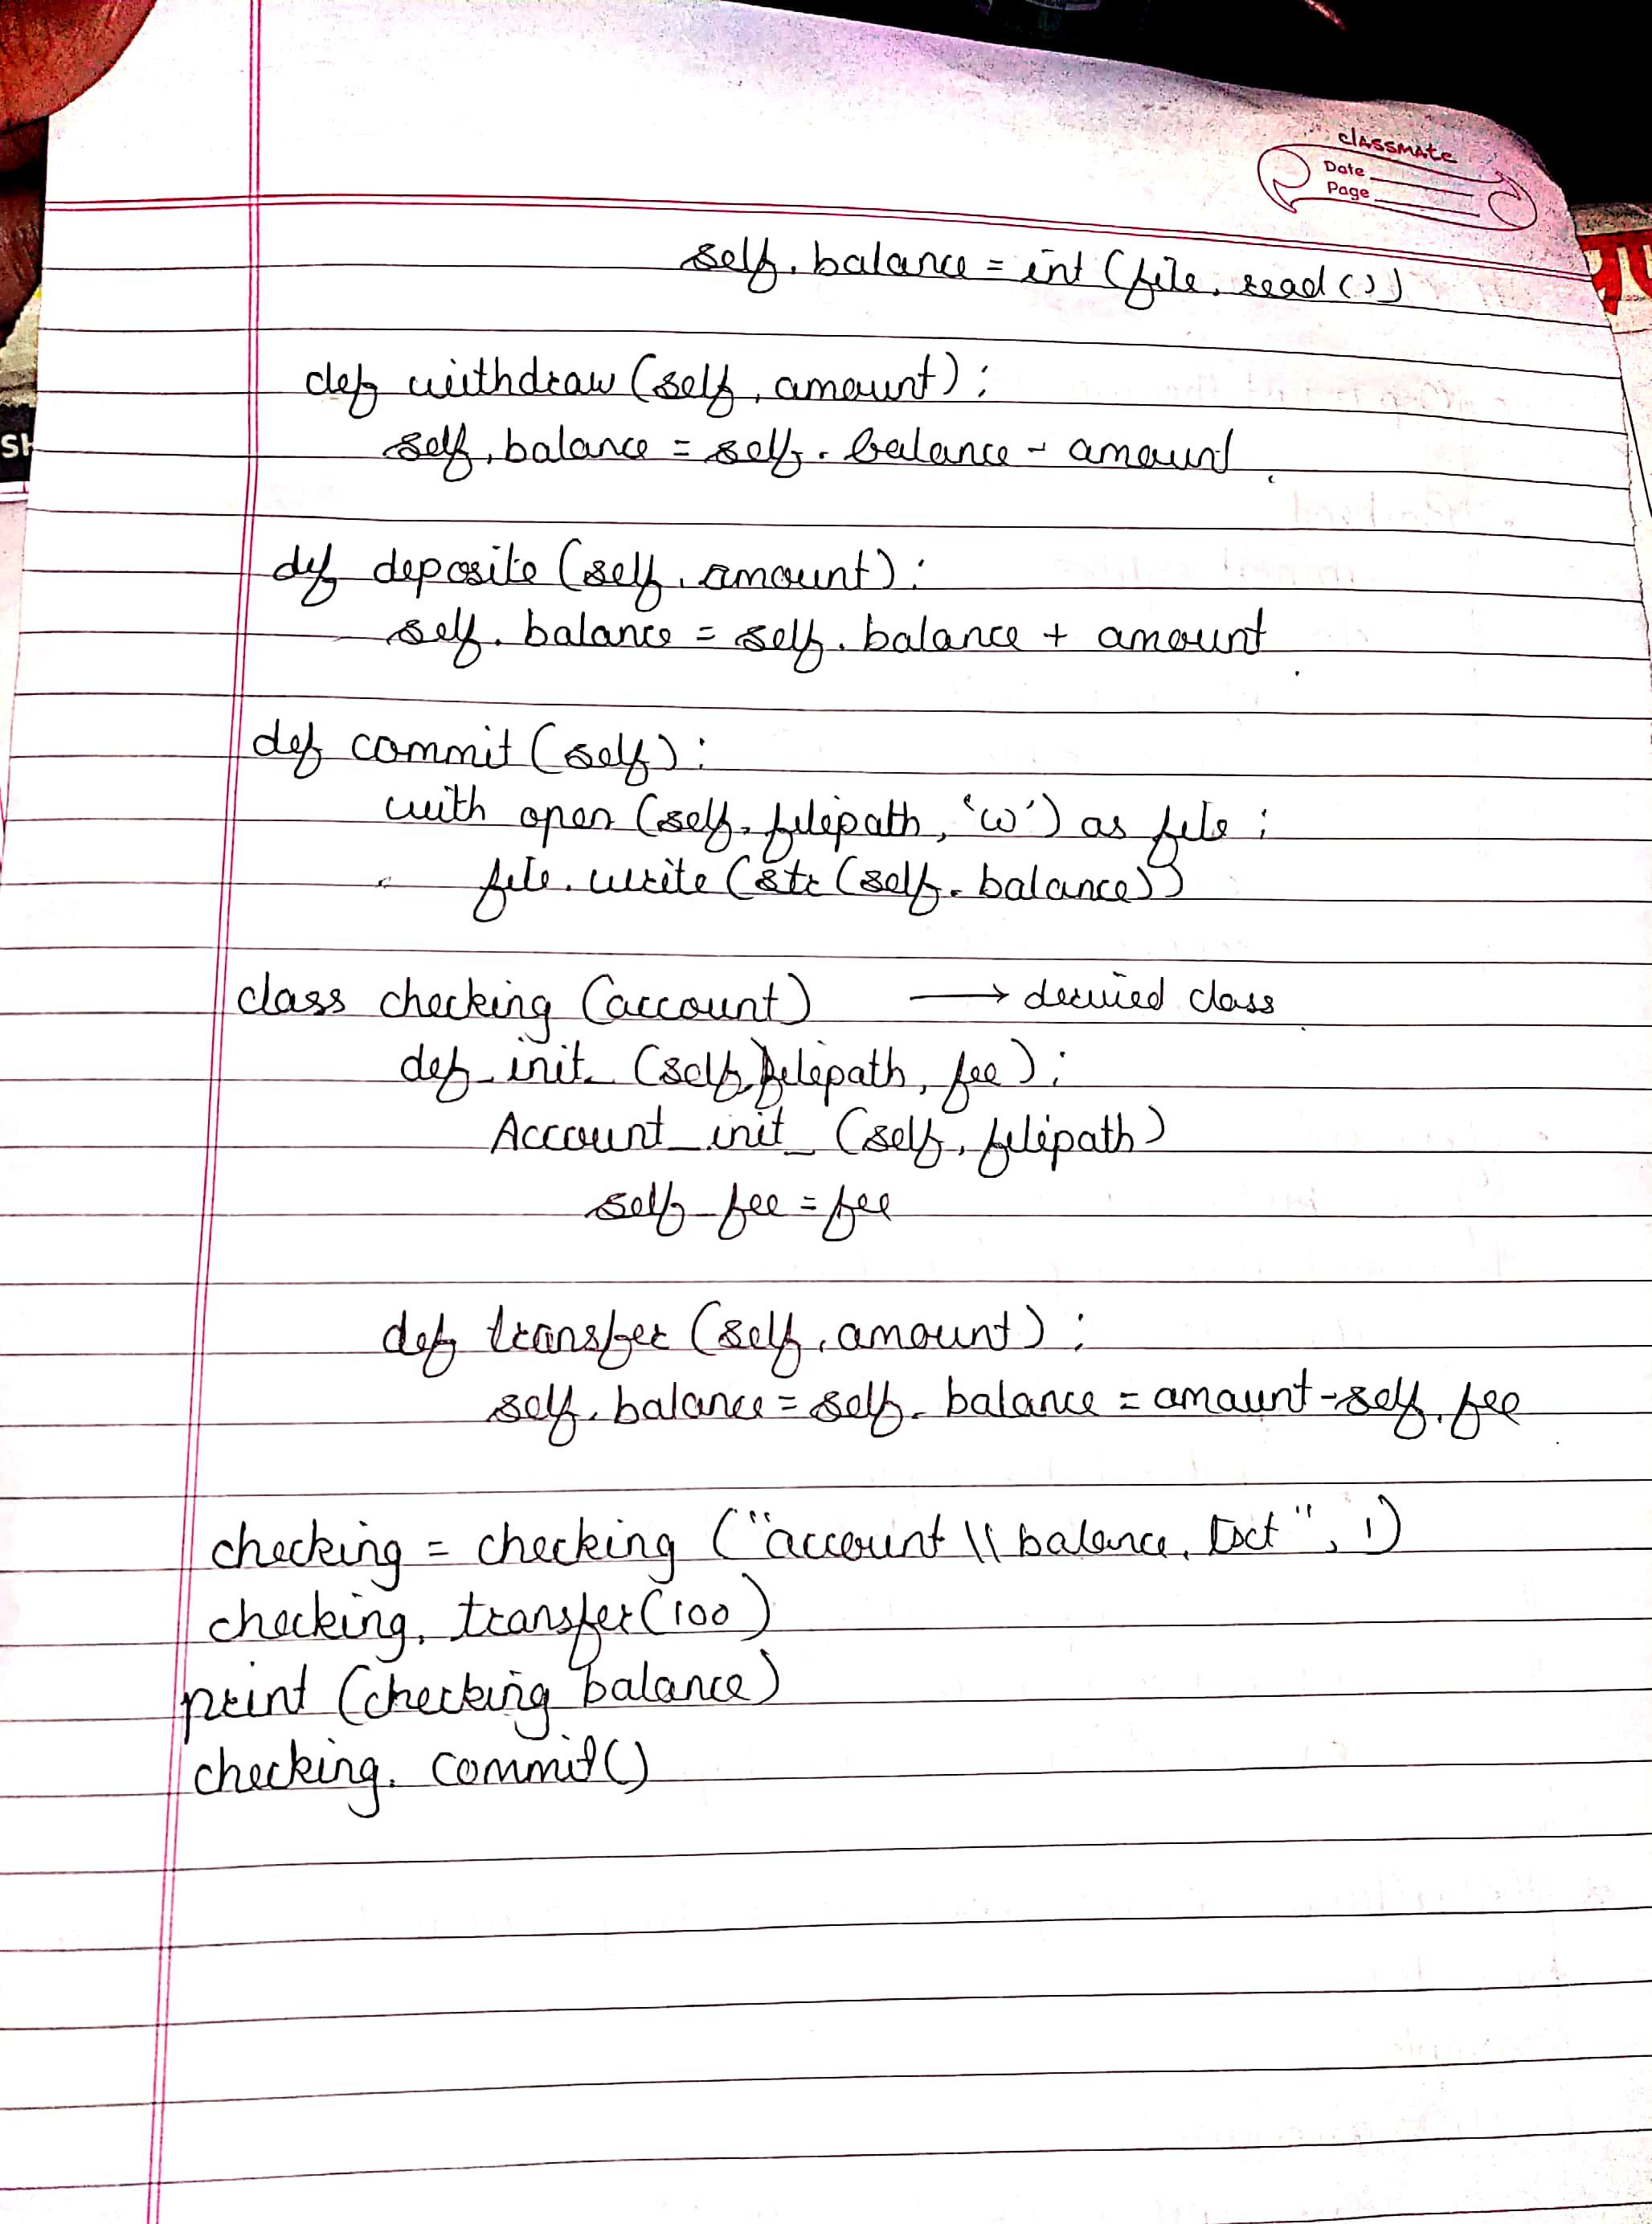 classmate
Date
Page
self.balance = int (file.read())
def withdraw (self, amount):
self.balance = self.balance - amount
def deposite (self, amount):
self.balance = self.balance + amount
def commit (self):
with open (self.filepath, 'w') as file:
file.write (str (self.balance))
class checking (account) → derived class
def _init_ (self, filepath, fee):
Account_init_ (self, filepath)
self_fee = fee
def transfer (self, amount):
self.balance = self.balance = amount - self.fee
checking = checking ("account \\ balance.txt", 1)
checking.transfer(100)
print (checking balance)
checking.commit()